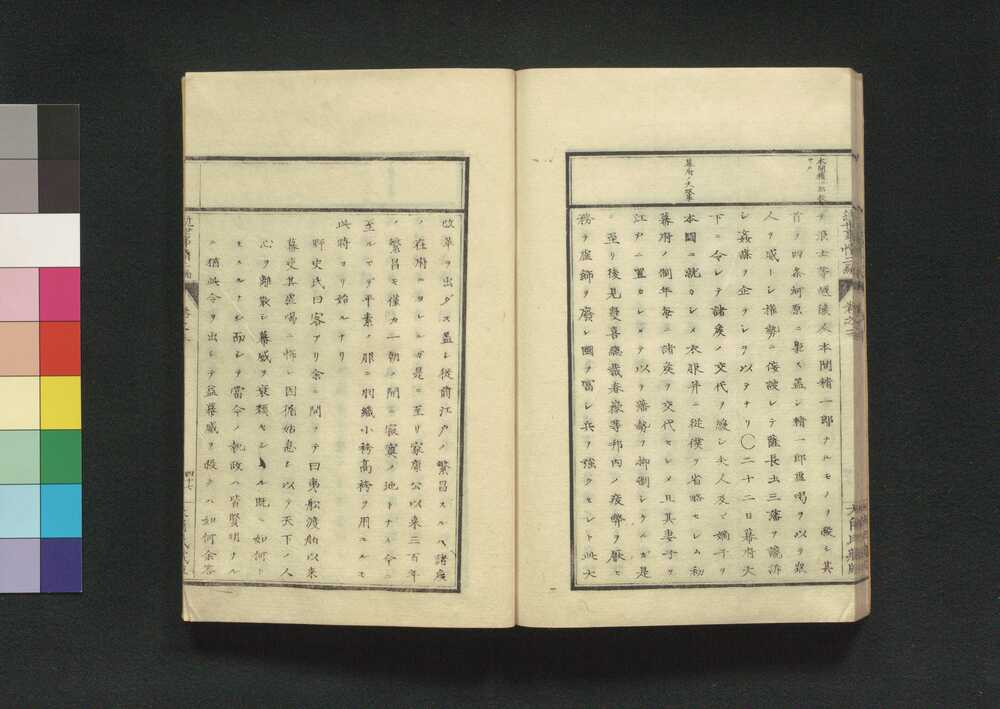 本間精一郎
幕府ノ大変革
ヲ浪士等越後人本間精一郎ナルモノヲ殺シ其
首ヲ四条河原ニ梟ス蓋シ精一郎虚喝ヲ以テ衆
人ヲ威シ権勢ニ傲レテ薩長土三藩ヲ讒訴
シ姦謀ヲ企テシヲ以テナリ〇二十二日幕府天
下ニ令シテ諸侯ノ交代ヲ緩シ夫人及ヒ嫡子ヲ
本国ニ就カシメ衣服并ニ従僕ヲ省略セシム初
幕府ノ制年毎ニ諸侯ヲ交代セシメ且其妻子ヲ
江戸ニ置カシメテ以テ藩勢ヲ抑制シタルガ是
ニ至リ後見慶喜総裁春嶽等邦内ノ疲弊ヲ厭ヒ
務テ虚飾ヲ廃シ国ヲ富シ兵ヲ強クセント此大
改革ヲ出ダス蓋シ従前江戸ノ繁昌スルハ諸侯
ノ在府ニヨレシガ是ニ至リ家康公以来三百年
ノ繁昌モ僅カ一朝ノ間ニ寂寞ノ地トナル今ニ
至ルマデ平素ノ服ニ羽織小袴高袴ヲ用ユルモ
此時ヨリ始ルナリ
野史氏曰客アリ余ニ問テ曰夷船渡来以来
幕吏其虚喝ニ怖レ因循姑息ヲ以テ天下ノ人
心ヲ離散シ幕威ヲ衰頽セシハ既ニ如何トモ
セスルナシ而シテ當今ノ執政ハ皆賢明ナル
ニ猶此令ヲ出シテ益幕威ヲ殺クハ如何余答
四十七